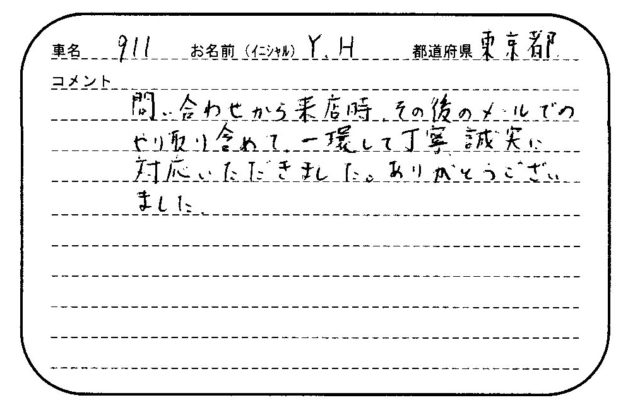 車名 911 お名前（ｲﾆｼｬﾙ）Y.H 都道府県 東京都
コメント
問い合わせから来店時、その後のメールでの
やり取り含めて、一環して丁寧、誠実に
対応いただきました。ありがとうござい
ました。